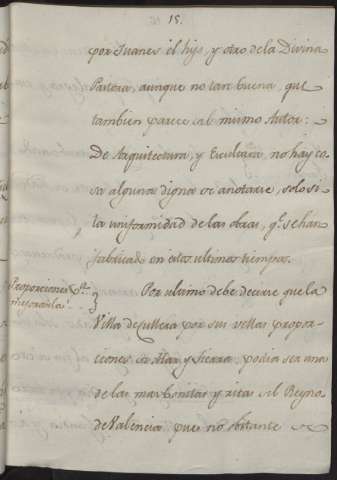 15.
por Juanes el hijo, y otro de la Divina
Pastora, aunque no tan buena, que
tambien parece del mismo Autor:
De Arquitectura, y Escultura no hay co-
sa alguna digna de anotarse, solo si
la uniformidad de las obras, q.e se han
fabricado en estos ultimos tiempos.
Proporciones p.a
mejorarla.
Por ultimo debe decirse que la
Villa de Cullera por sus vellas propor-
ciones de Mar, y tierra, podia ser una
de las mas bonitas y ricas del Reyno
de Valencia pues no obstante